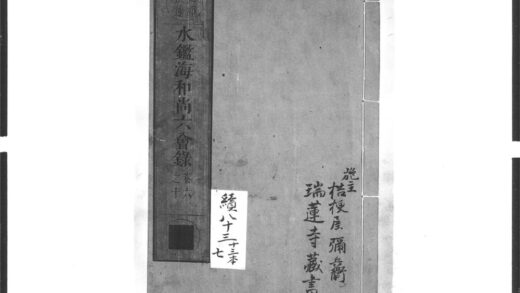 水鑑海和尚六會錄 卷六之十
續八十三 十三本
七
施主
桔梗屋彌兵衛
瑞蓮寺藏書